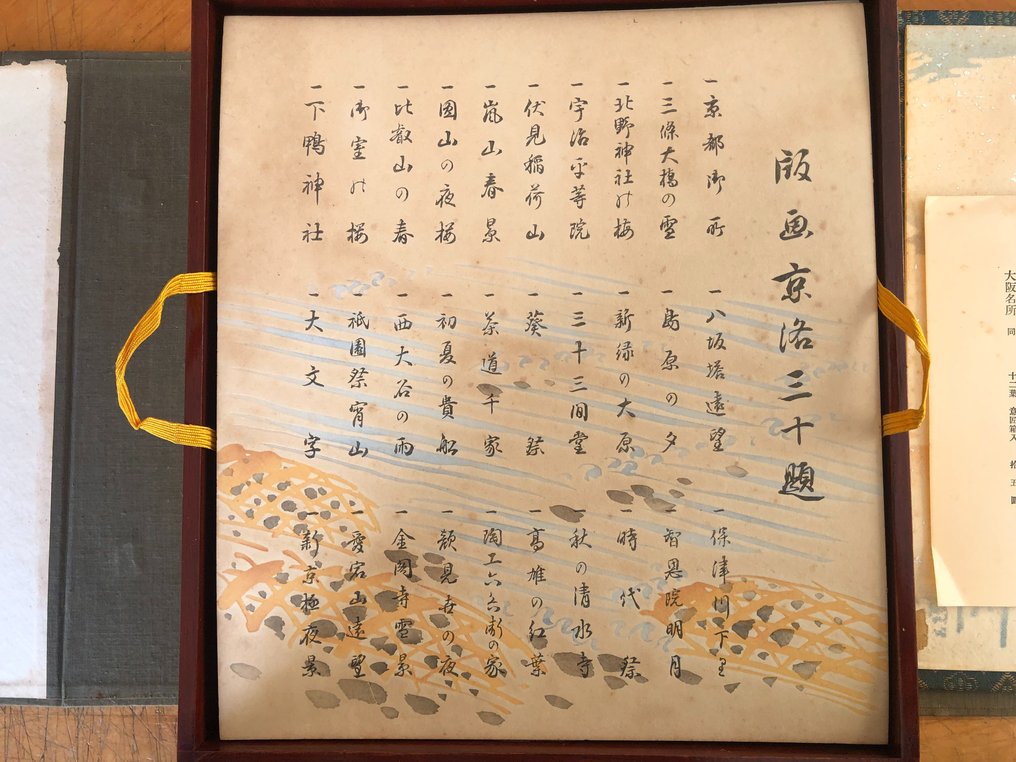 版画京洛三十題
一京都御所
一三條大橋の雪
一北野神社の梅
一宇治平等院
一伏見稲荷山
一嵐山春景
一圓山の夜桜
一比叡山の春
一御室の桜
一下鴨神社
一八坂塔遠望
一島原の夕
一新緑の大原
一三十三間堂
一葵祭
一茶道千家
一初夏の貴船
一西大谷の雨
一祇園祭宵山
一大文字
一保津川下り
一智恩院明月
一時代祭
一秋の清水寺
一高雄の紅葉
一陶工六兵衛の家
一顔見世の夜
一金閣寺雪景
一愛宕山遠望
一新京極夜景
大阪名所
同
十二葉
意匠箱入
拾五圓